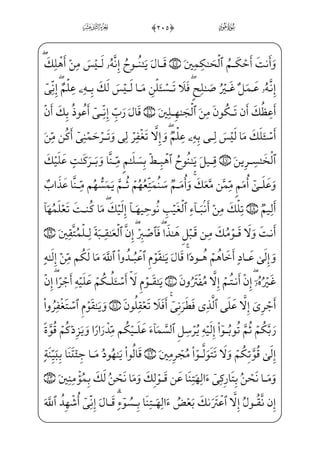 سُورَةُ هُودٍ ﴿٢٠٥﴾
وَأَنتَ أَحْكَمُ ٱلْحَٰكِمِينَ قَالَ يَٰنُوحُ إِنَّهُۥ لَيْسَ مِنْ أَهْلِكَ
إِنَّهُۥ عَمَلٌ غَيْرُ صَٰلِحٍ فَلَا تَسْـَٔلَنِّ مَا لَيْسَ لَكَ بِهِۦ عِلْمٌ إِنِّيَ
أَعِظُكَ أَن تَكُونَ مِنَ ٱلْجَٰهِلِينَ قَالَ رَبِّ إِنِّيَ أَعُوذُ بِكَ أَنْ
أَسْـَٔلَكَ مَا لَيْسَ لِى بِهِۦ عِلْمٌ وَإِلَّا تَغْفِرْ لِى وَتَرْحَمْنِىٓ أَكُن مِّنَ
ٱلْخَٰسِرِينَ قِيلَ يَٰنُوحُ ٱهْبِطْ بِسَلَٰمٍ مِّنَّا وَبَرَكَٰتٍ عَلَيْكَ
وَعَلَىٰٓ أُمَمٍ مِّمَّن مَّعَكَ وَأُمَمٌ سَنُمَتِّعُهُمْ ثُمَّ يَمَسُّهُم مِّنَّا عَذَابٌ
أَلِيمٌ تِلْكَ مِنْ أَنۢبَآءِ ٱلْغَيْبِ نُوحِيهَآ إِلَيْكَ مَا كُنتَ تَعْلَمُهَآ
أَنتَ وَلَا قَوْمُكَ مِن قَبْلِ هَٰذَا فَٱصْبِرْ إِنَّ ٱلْعَٰقِبَةَ لِلْمُتَّقِينَ
وَإِلَىٰ عَادٍ أَخَاهُمْ هُودًا قَالَ يَٰقَوْمِ ٱعْبُدُوا۟ ٱللَّهَ مَا لَكُم مِّنْ إِلَٰهٍ
غَيْرُهُۥٓ إِنْ أَنتُمْ إِلَّا مُفْتَرُونَ يَٰقَوْمِ لَآ أَسْـَٔلُكُمْ عَلَيْهِ أَجْرًا إِنْ
أَجْرِىَ إِلَّا عَلَى ٱلَّذِى فَطَرَنِىٓ أَفَلَا تَعْقِلُونَ وَيَٰقَوْمِ ٱسْتَغْفِرُوا۟
رَبَّكُمْ ثُمَّ تُوبُوٓا۟ إِلَيْهِ يُرْسِلِ ٱلسَّمَآءَ عَلَيْكُم مِّدْرَارًا وَيَزِدْكُمْ قُوَّةً
إِلَىٰ قُوَّتِكُمْ وَلَا تَتَوَلَّوْا۟ مُجْرِمِينَ قَالُوا۟ يَٰهُودُ مَا جِئْتَنَا بِبَيِّنَةٍ
وَمَا نَحْنُ بِتَارِكِىٓ ءَالِهَتِنَا عَن قَوْلِكَ وَمَا نَحْنُ لَكَ بِمُؤْمِنِينَ
إِن نَّقُولُ إِلَّا ٱعْتَرَىٰكَ بَعْضُ ءَالِهَتِنَا بِسُوٓءٍ قَالَ إِنِّىٓ أُشْهِدُ ٱللَّهَ